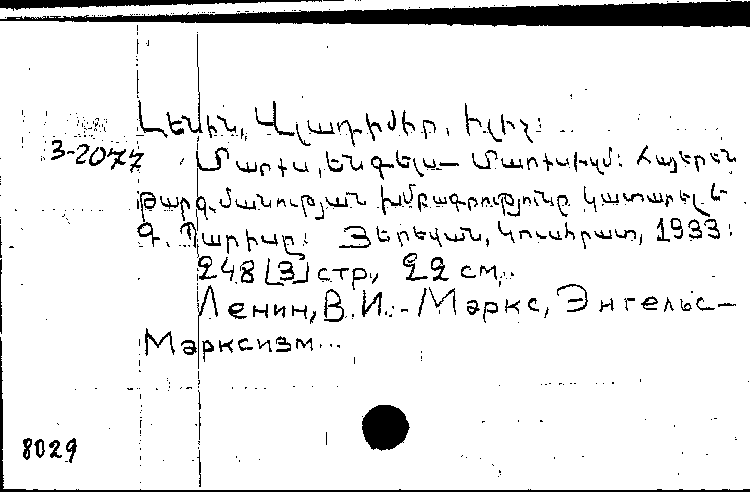 Լենին, Վլադիմիր, Իլիչ:
3-2077 Մարքս, Ենգելս — Մարքսիզմ: Հայերեն
թարգմանության խմբագրությունը կատարել է
Գ. Պարիսը: Յերեվան, Կուսհրատ, 1933:
248 [3] стр., 22 см.
Ленин, В.И. - Маркс, Энгельс-
Марксизм...
8029